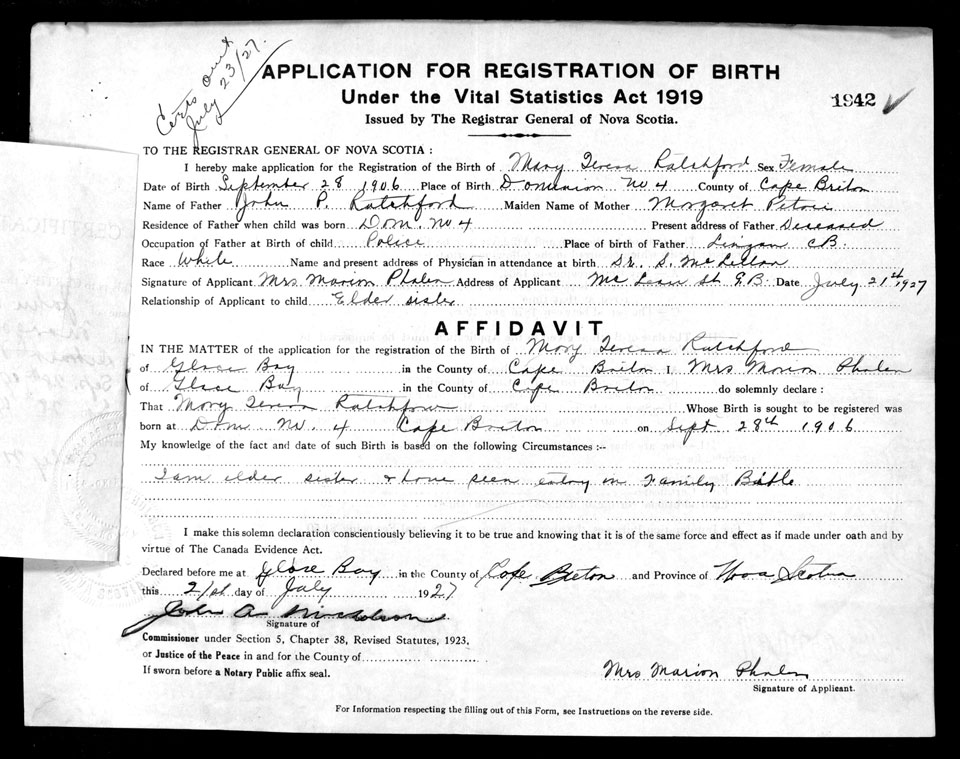 Certs out
July 23/27.
APPLICATION FOR REGISTRATION OF BIRTH
Under the Vital Statistics Act 1919
1942
Issued by The Registrar General of Nova Scotia.
TO THE REGISTRAR GENERAL OF NOVA SCOTIA :
I hereby make application for the Registration of the Birth of Mary Teresa Ratchford Sex Female
Date of Birth September 28 1906 Place of Birth Dominion No 4 County of Cape Briton
Name of Father John P. Ratchford Maiden Name of Mother Margaret Petrie
Residence of Father when child was born Dom. No 4 Present address of Father Diseased
Occupation of Father at Birth of child Police Place of birth of Father Lingan CB.
Race White Name and present address of Physician in attendance at birth Dr. S. McLellan
Signature of Applicant Mrs Marion Phalen Address of Applicant McLean St G.B. Date July 21st 1927
Relationship of Applicant to child Elder sister
AFFIDAVIT
IN THE MATTER of the application for the registration of the Birth of Mary Teresa Ratchford
of Glace Bay in the County of Cape Briton I Mrs Marion Phalen
of Glace Bay in the County of Cape Briton do solemnly declare :
That Mary Teresa Ratchford Whose Birth is sought to be registered was
born at Dom No. 4 Cape Briton on Sept 28th 1906
My knowledge of the fact and date of such Birth is based on the following Circumstances :--
I am elder sister & have seen entry in Family Bible
I make this solemn declaration conscientiously believing it to be true and knowing that it is of the same force and effect as if made under oath and by
virtue of The Canada Evidence Act.
Declared before me at Glace Bay in the County of Cape Breton and Province of Nova Scotia
this 21st day of July 1927
John A Nicholson
Signature of
Commissioner under Section 5, Chapter 38, Revised Statutes, 1923,
or Justice of the Peace in and for the County of
If sworn before a Notary Public affix seal.
Mrs Marion Phalen
Signature of Applicant.
For Information respecting the filling out of this Form, see Instructions on the reverse side.